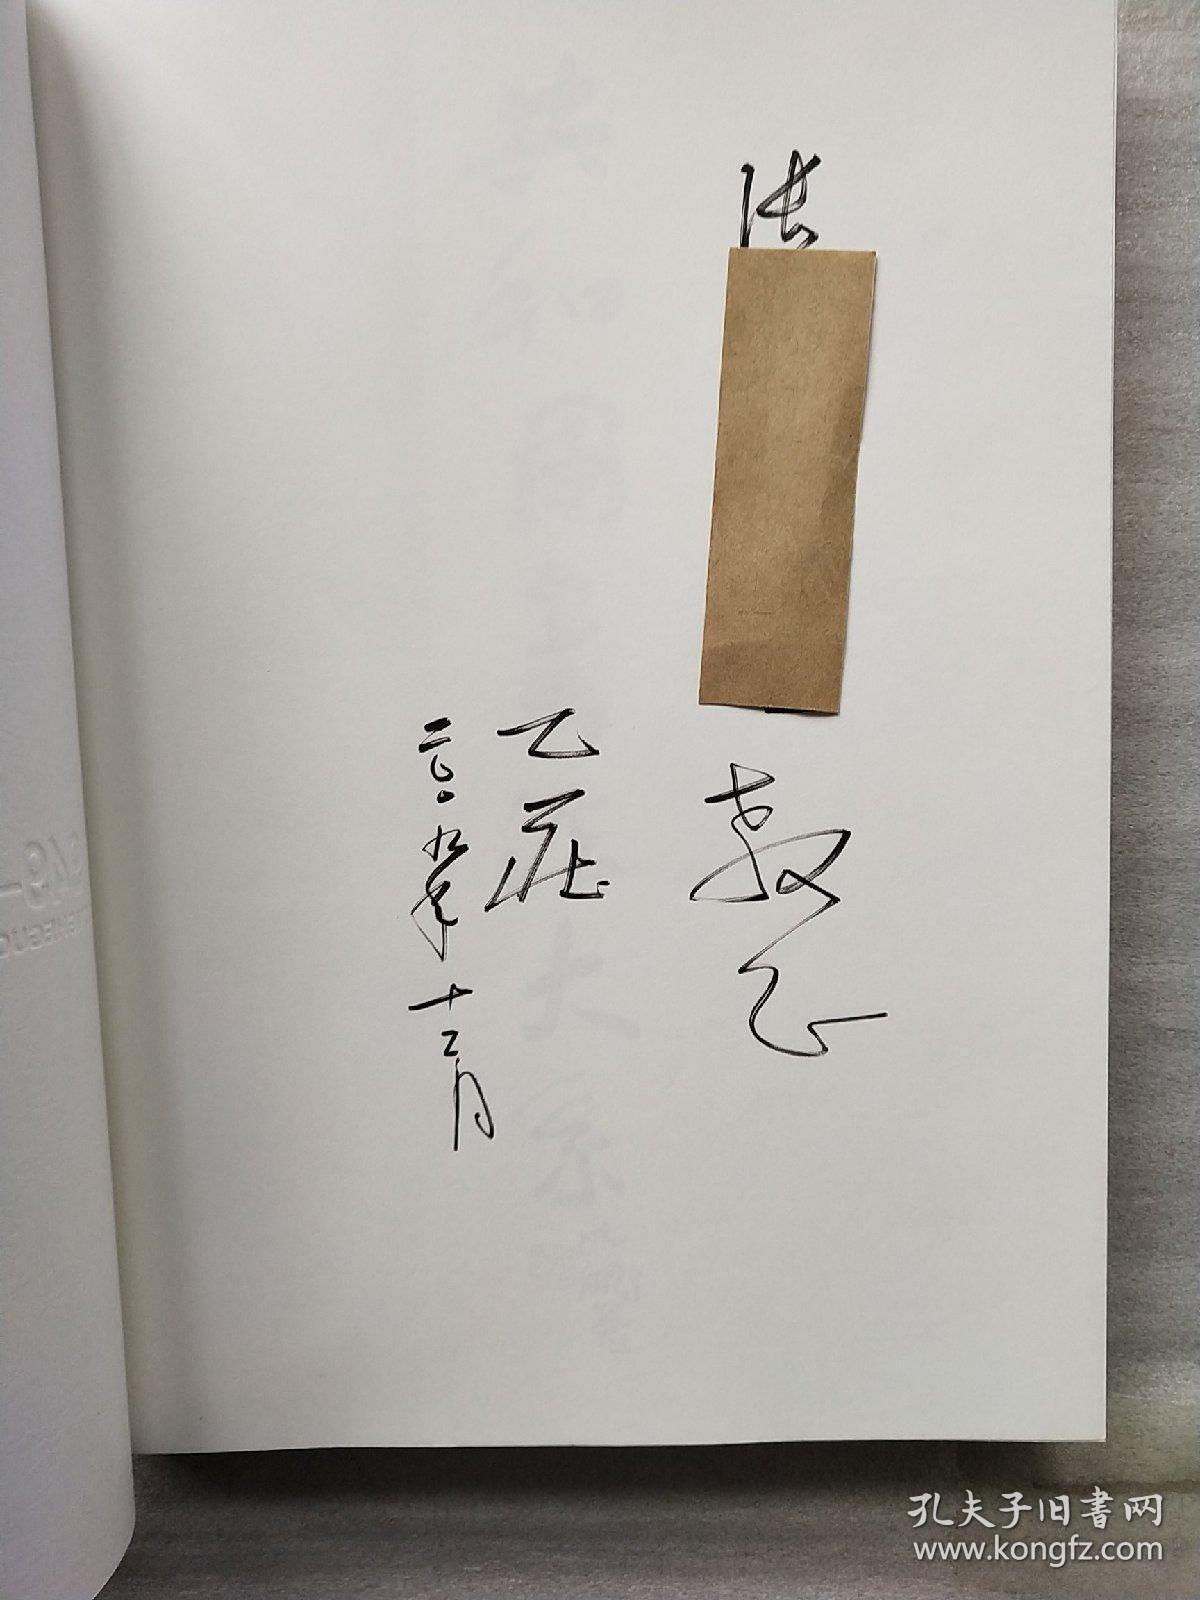 张
教正
乙庄
二〇〇九年十二月
孔夫子旧書网
www.kongfz.com